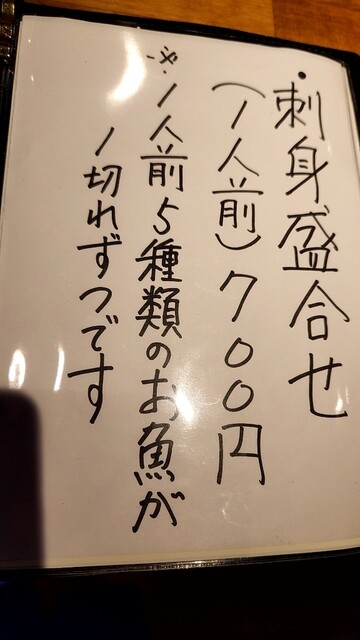 ・刺身盛合せ
(1人前)700円
※1人前5種類のお魚が
1切れずつです